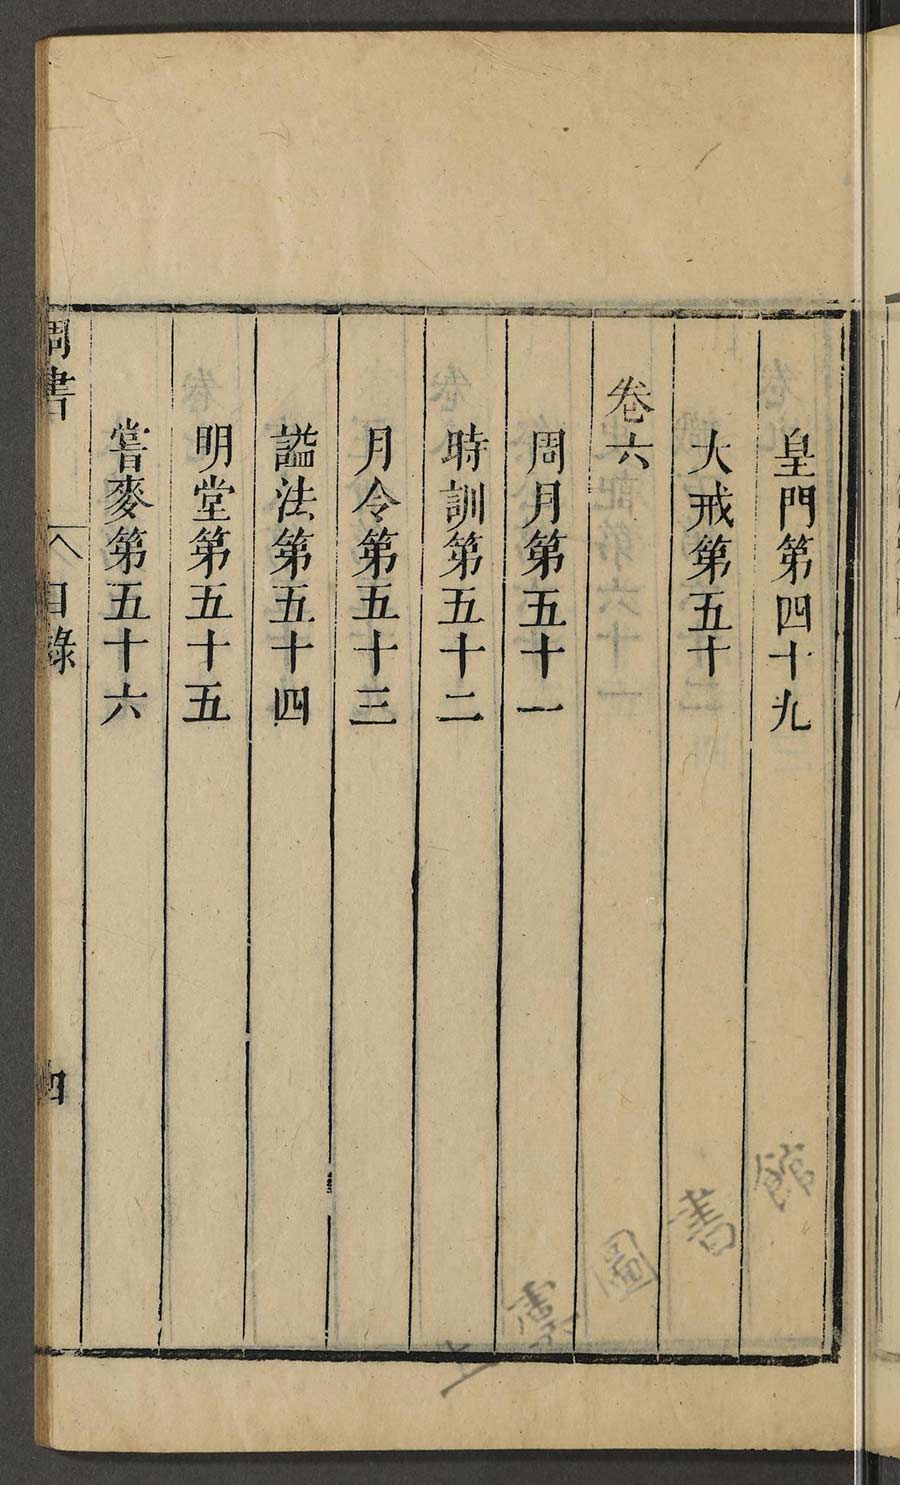 皇門第四十九
大戒第五十
卷六
周月第五十一
時訓第五十二
月令第五十三
諡法第五十四
明堂第五十五
嘗麥第五十六
周書
目錄
四
圖書館